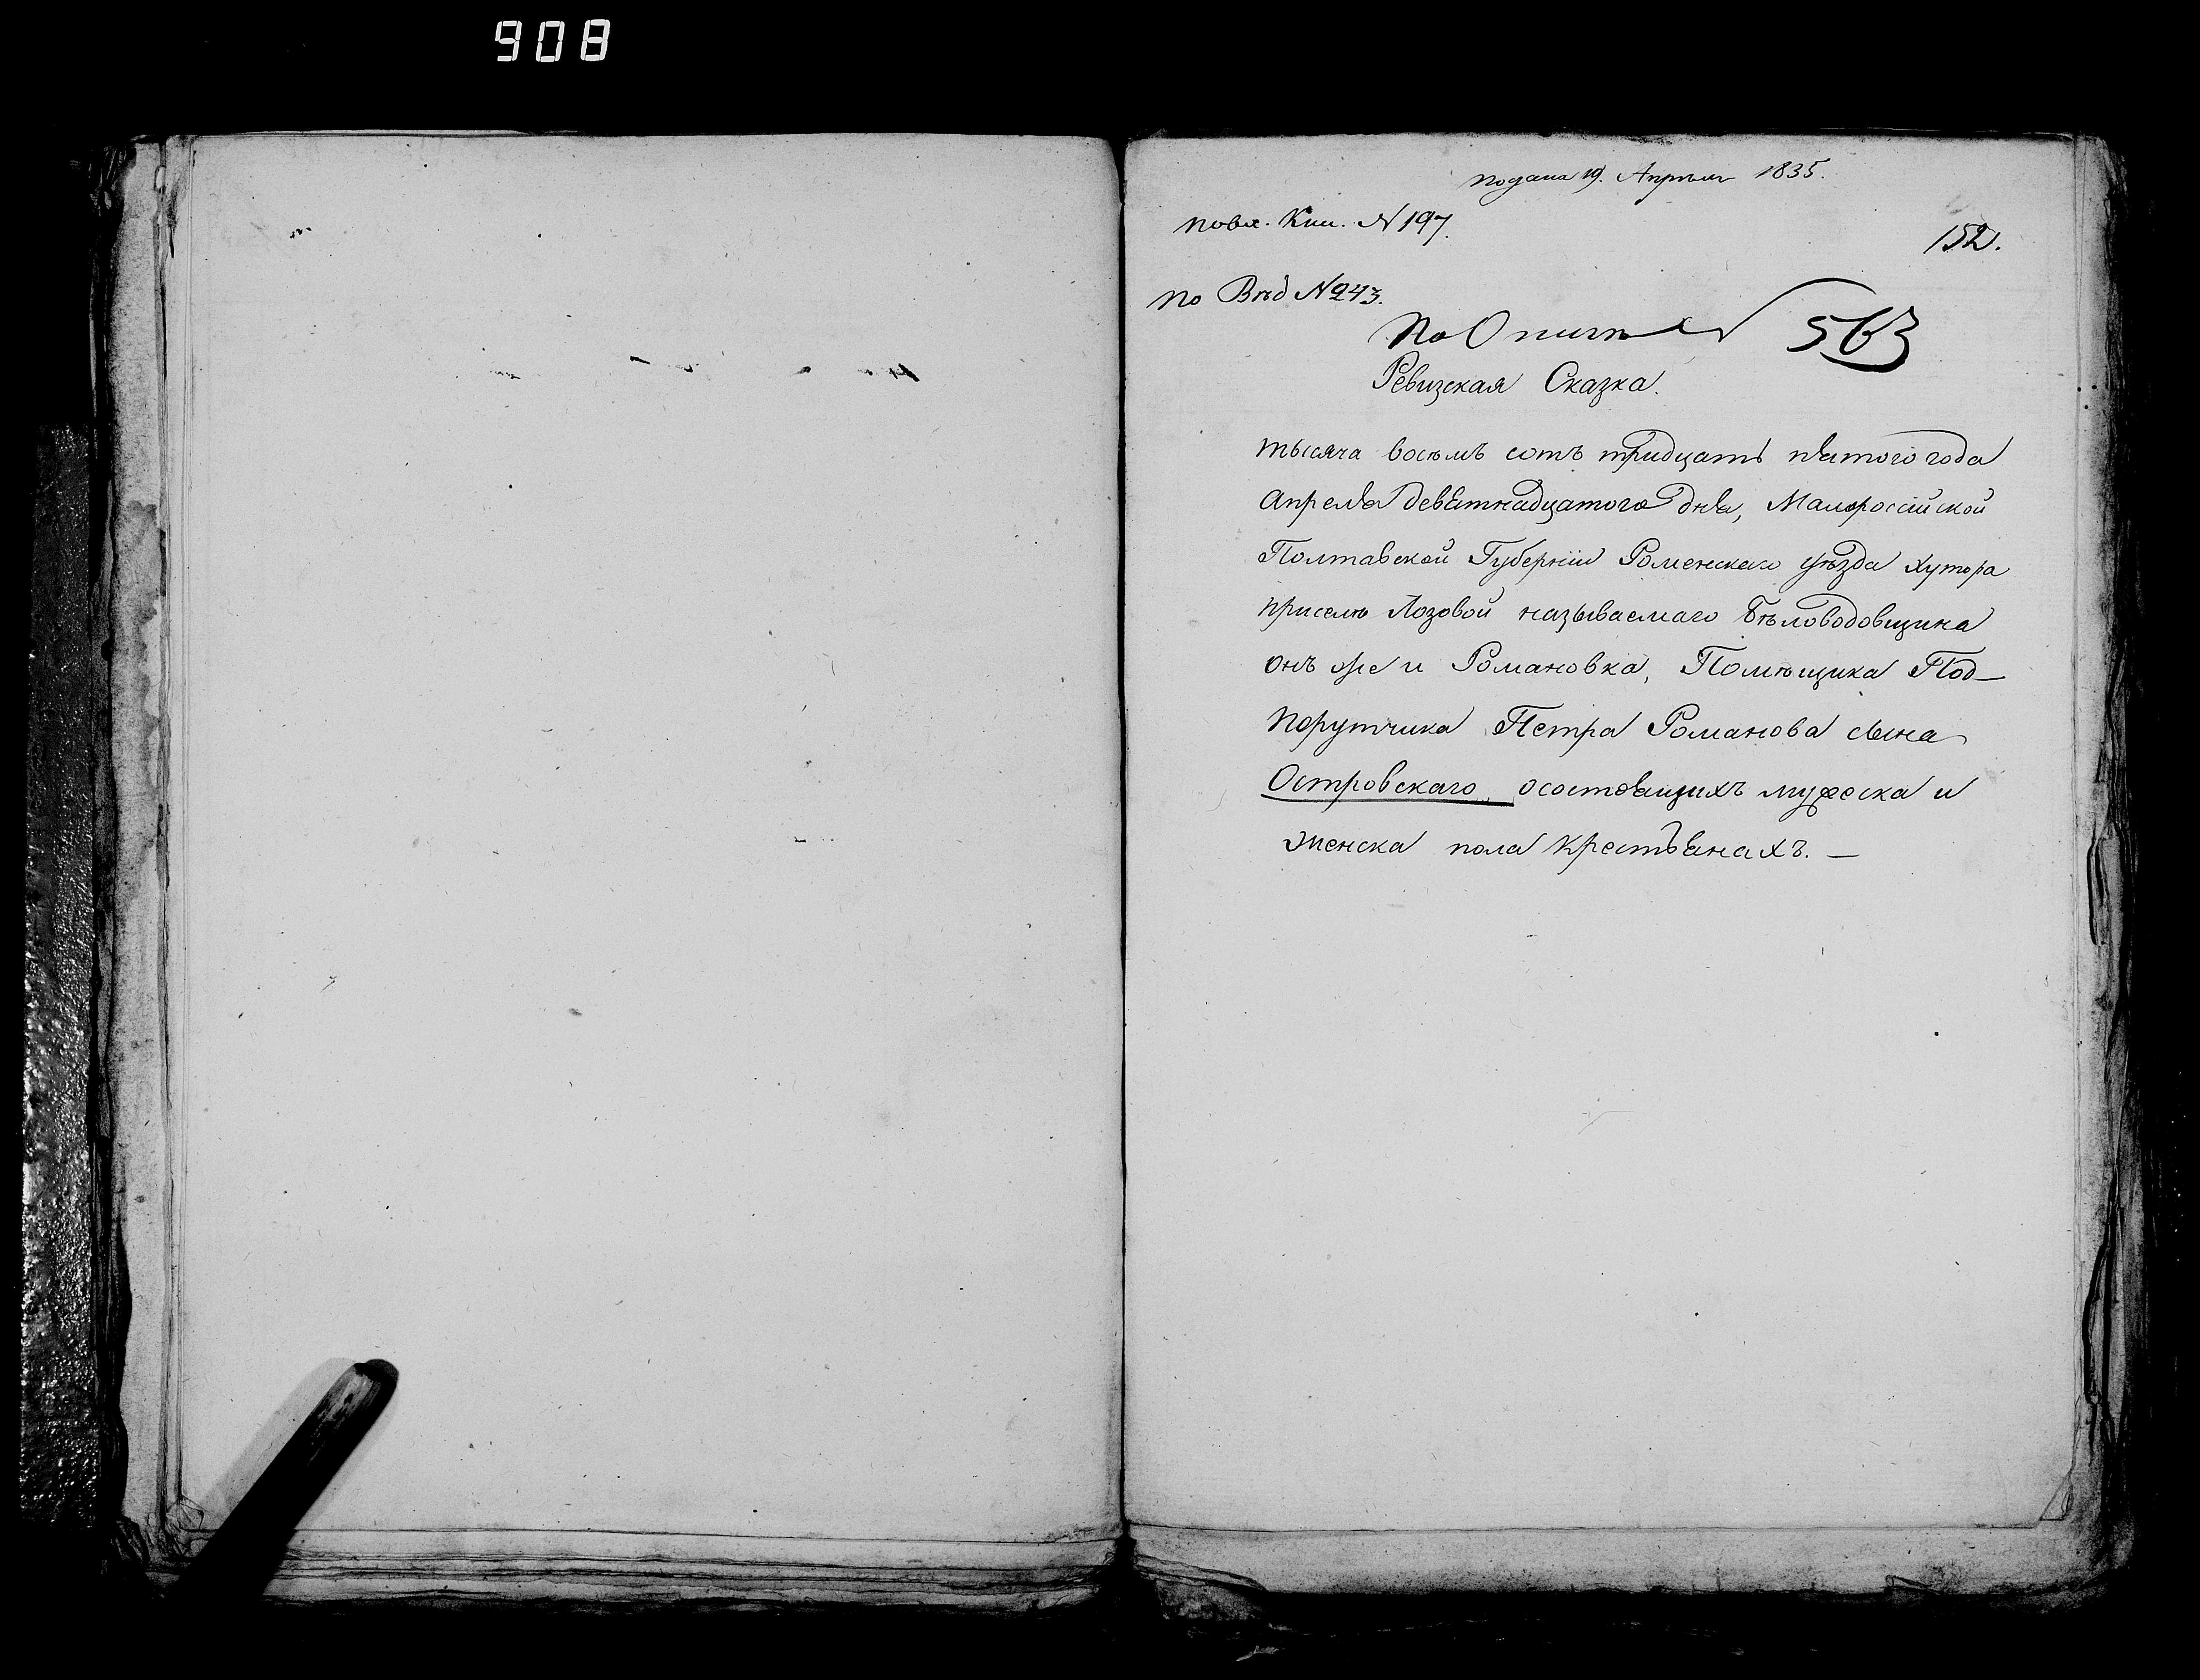 908
подана 19. Апрѣля 1835.
по вх. Кни. N 197.
152.
по Вѣд N 243.
По Описи N 563
Ревизская Сказка.
тысяча восемъ сотъ тридцать пятого года
апреля девятнадцатого дня, Малороссійской
Полтавской Губерніи Роменскаго уѣзда хутора
приселѣ Лозовой називаемаго Бѣловодовщина
онъ же и Романовка, Помѣщика Под-
порутчика Петра Романова сына
Островскаго, осостоящихъ мужеска и
женска пола крестьянахъ. —